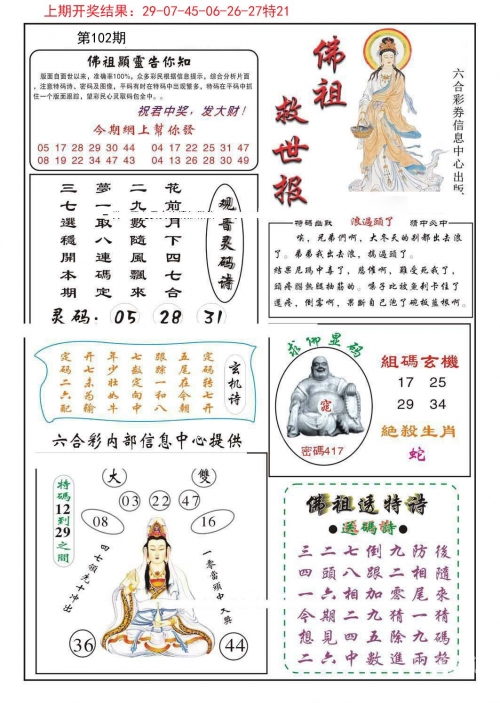 上期开奖结果：29-07-45-06-26-27特21
第102期
佛祖顯靈告你知
版面自面世以来，准确率100%，众多彩民根据信息提示，综合分析片面
，注意特码诗、密码及图像，平码有时在特码中出现繁多，特码在平码中抓
住一个版面跟踪，望彩民心灵取码包全中。。
祝君中奖，发大财！
今期網上幫你發
05 17 28 29 30 44 04 17 22 25 31 47
08 19 22 34 47 43 04 13 26 28 30 49
佛祖
救世报
六合彩券信息中心出版
观音灵码诗
花前月下四七合
二九數隨風飄來
夢一取八連碼定
三七選穩開本期
灵码：05 28 31
特碼幽默 浪過頭了 猜中必中
唉，兄弟們啊，大冬天的别都出去浪
了。弟弟我出去浪，搞過頭了。
结果尼瑪中毒了，悲催啊，難受死我了，
頭疼腦熱腿抽筋的。嗓子比放魚刺卡住了
還疼，倒霉啊，果斷自己泡了碗板藍根啊。
玄机诗
定码转七开
五尾在今朝
跟踪一和八
七数定向中
年少壮如牛
开七未为输
定码二六配
六合彩内部信息中心提供
求佛显码
寃
密碼417
組碼玄機
17 25
29 34
絕殺生肖
蛇
特碼12到29之間
大 雙
03 22 47
08 16
四七領先十冲出
一零當頭中大獎
36 44
佛祖透特诗
送碼诗
三二七倒九防後
四頭八跟二相隨
一六相加零尾來
今期二九猜一猜
想見四五除九碼
二六中數進兩格